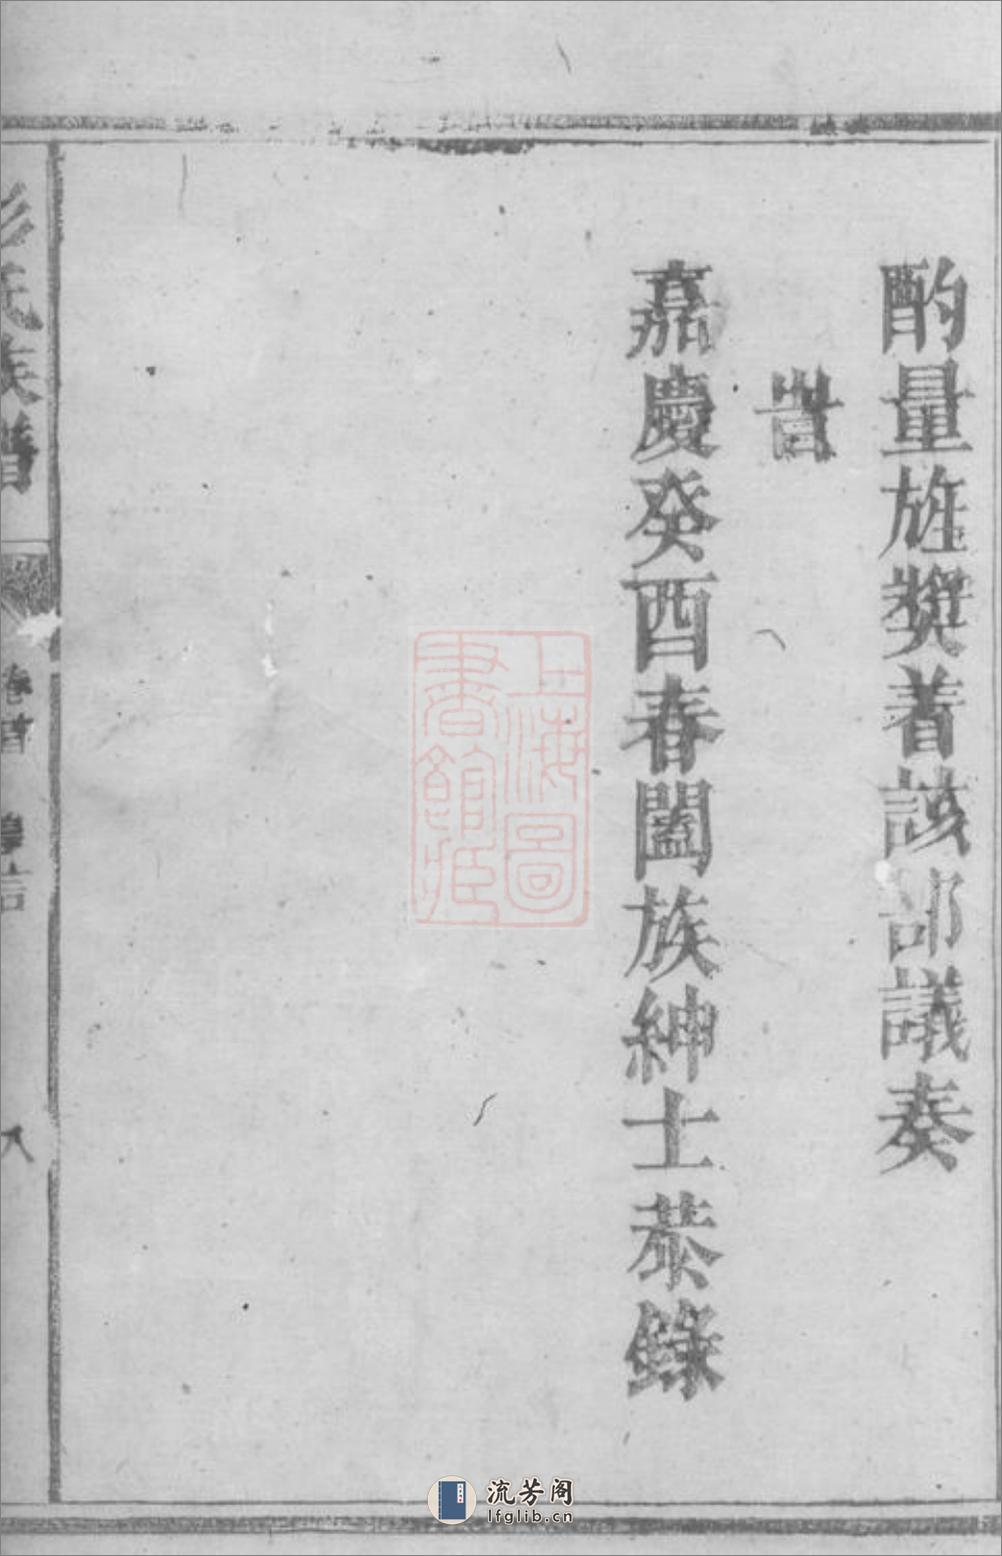 酌量旌獎着該部議奏
旹
嘉慶癸酉春闔族紳士恭錄
氏族譜
卷首
八
上海圖
書館藏
流芳阁
lfglib.cn